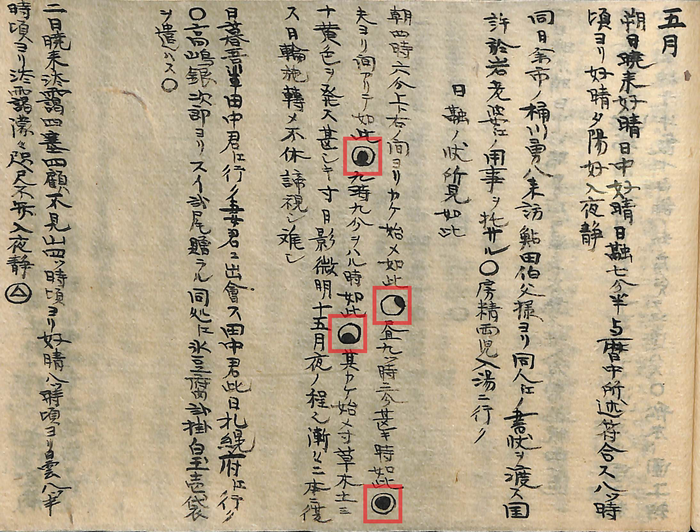 五月
朔日暁来好晴日中好晴日融七分半与暦中所述符合ス八ツ時
頃ヨリ好晴夕陽好入夜静
同日余市ノ桶川勇八来訪鮎田伯父様ヨリ同人江ノ書状ヲ渡ス因
許於岩老婆江ノ用事ヲ托サル〇房精西児入湯ニ行ク
日融ノ状所見如此
朝四時六分上ト右ノ間ヨリカケ始メ如此 昼九ツ時二分甚キ時如此
夫ヨリ間アリテ如此 九時九分ヲハル時如此 其カケ始メ寸草木土ミ
十黄色ヲ発ス甚シキ寸日影微明十五月夜ノ程ヘ漸クニ本ニ復
ス日輪施轉メ不休諦視シ難シ
日暮吾輩田中君江行ク妻君ニ出會ス田中君此日札幌府江行ク
〇高嶋銀次郎ヨリスイ弐尾贈ラル同処江氷豆腐弐掛白玉壱袋
ヲ遣ハス〇
二日暁来淡靄四塞四顧不見山四ツ時頃ヨリ好晴八時頃ヨリ白雲八半
時頃ヨリ淡靄濛々咫尺不弁入夜静